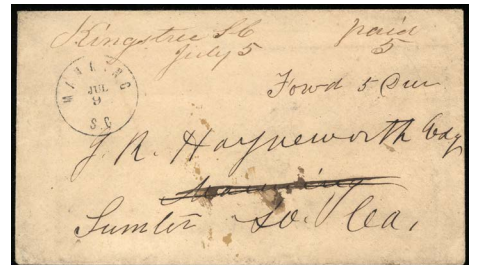 Kingstree S C paid
July 5 5
MANNING
JUL
9
S.C
Fowd 5 Due
J R. Haynesworth Esqr
Manning
Sumter So. Ca,